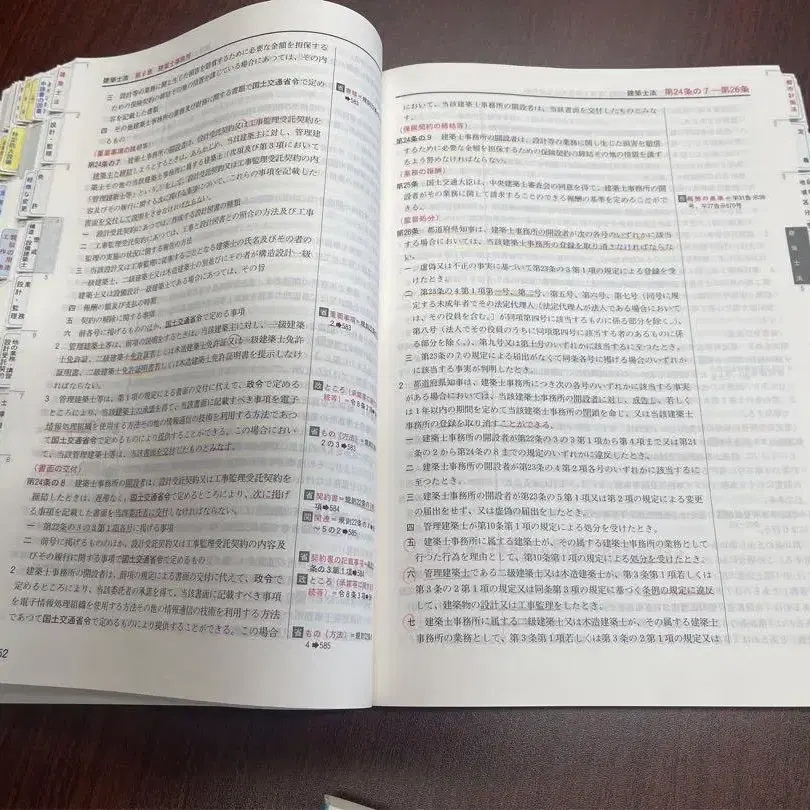 建築士法 第6章 建築士事務所
三 設計等の業務に関し生じた損害を賠償するために必要な金額を担保する
ための保険契約の締結その他の措置を講じている場合にあつては、その内
容を記載した書類
四 その他建築士事務所の業務及び財務に関する書類で国土交通省令で定め
るもの
(重要事項の説明等)
第24条の7 建築士事務所の開設者は、設計受託契約又は工事監理受託契約を
建築主と締結しようとするときは、あらかじめ、当該建築主に対し、管理建
築士その他の当該建築士事務所に属する建築士(次項及び第3項において
「管理建築士等」という。)をして、設計受託契約又は工事監理受託契約の内
容及びその履行に関する次に掲げる事項について、これらの事項を記載した
書面を交付して説明をさせなければならない。
一 設計受託契約にあつては、作成する設計図書の種類
二 工事監理受託契約にあつては、工事と設計図書との照合の方法及び工事
監理の実施の状況に関する報告の方法
三 当該設計又は工事監理に従事することとなる建築士の氏名及びその者の
一級建築士、二級建築士又は木造建築士の別並びにその者が構造設計一級
建築士又は設備設計一級建築士である場合にあつては、その旨
四 報酬の額及び支払の時期
五 契約の解除に関する事項
六 前各号に掲げるもののほか、国土交通省令で定める事項
2 管理建築士等は、前項の説明をするときは、当該建築主に対し、一級建築
士免許証、二級建築士免許証若しくは木造建築士免許証又は一級建築士免許
証明書、二級建築士免許証明書若しくは木造建築士免許証明書を提示しなけ
ればならない。
3 管理建築士等は、第1項の規定による書面の交付に代えて、政令で定める
ところにより、当該建築主の承諾を得て、当該書面に記載すべき事項を電子
情報処理組織を使用する方法その他の情報通信の技術を利用する方法であつ
て国土交通省令で定めるものにより提供することができる。この場合におい
て、当該管理建築士等は、当該書面を交付したものとみなす。
(書面の交付)
第24条の8 建築士事務所の開設者は、設計受託契約又は工事監理受託契約を
締結したときは、遅滞なく、国土交通省令で定めるところにより、次に掲げ
る事項を記載した書面を当該委託者に交付しなければならない。
一 第22条の3の3第1項各号に掲げる事項
二 前号に掲げるもののほか、設計受託契約又は工事監理受託契約の内容及
びその履行に関する事項で国土交通省令で定めるもの
2 建築士事務所の開設者は、前項の規定による書面の交付に代えて、政令で
定めるところにより、当該委託者の承諾を得て、当該書面に記載すべき事項
を電子情報処理組織を使用する方法その他の情報通信の技術を利用する方法
であつて国土交通省令で定めるものにより提供することができる。この場合
52
➡583
省 重要事項=規則
2➡583
政 ところ(承諾
続等)=令8条
省 もの(方法)=規則
2の3➡583
省 契約書=規則22条の
項➡584
関 関連=規則22条の
~5の2➡585
省 契約書の記載事
条の3第1項
政 ところ(承諾等に関
続等)=令8条
省 もの(方法)=規則
4➡585
建築士法 第24条の7―第26条
において、当該建築士事務所の開設者は、当該書面を交付したものとみな
す。
(保険契約の締結等)
第24条の9 建築士事務所の開設者は、設計等の業務に関し生じた損害を賠償
するために必要な金額を担保するための保険契約の締結その他の措置を講ず
るよう努めなければならない。
(業務の報酬)
第25条 国土交通大臣は、中央建築士審査会の同意を得て、建築士事務所の開
設者がその業務に関して請求することのできる報酬の基準を定めることがで
きる。
(監督処分)
第26条 都道府県知事は、建築士事務所の開設者が次の各号のいずれかに該当
する場合においては、当該建築士事務所の登録を取り消さなければならな
い。
一 虚偽又は不正の事実に基づいて第23条の3第1項の規定による登録を受
けたとき。
二 第23条の4第1項第一号、第二号、第五号、第六号、第七号(同号に規
定する未成年者でその法定代理人(法定代理人が法人である場合において
は、その役員を含む。)が同項第四号に該当するものに係る部分を除く。)、
第八号(法人でその役員のうちに同項第四号に該当する者のあるものに係
る部分を除く。)、第九号又は第十号のいずれかに該当するに至つたとき。
三 第23条の7の規定による届出がなくて同条各号に掲げる場合のいずれか
に該当する事実が判明したとき。
2 都道府県知事は、建築士事務所につき次の各号のいずれかに該当する事実
がある場合においては、当該建築士事務所の開設者に対し、戒告し、若しく
は1年以内の期間を定めて当該建築士事務所の閉鎖を命じ、又は当該建築士
事務所の登録を取り消すことができる。
一 建築士事務所の開設者が第22条の3の3第1項から第4項まで又は第24
条の2から第24条の8までの規定のいずれかに違反したとき。
二 建築士事務所の開設者が第23条の4第2項各号のいずれかに該当するに
至つたとき。
三 建築士事務所の開設者が第23条の5第1項又は第2項の規定による変更
の届出をせず、又は虚偽の届出をしたとき。
四 管理建築士が第10条第1項の規定による処分を受けたとき。
五 建築士事務所に属する建築士が、その属する建築士事務所の業務として
行つた行為を理由として、第10条第1項の規定による処分を受けたとき。
六 管理建築士である二級建築士又は木造建築士が、第3条第1項若しくは
第3条の2第1項の規定又は同条第3項の規定に基づく条例の規定に違反
して、建築物の設計又は工事監理をしたとき。
七 建築士事務所に属する二級建築士又は木造建築士が、その属する建築士
事務所の業務として、第3条第1項若しくは第3条の2第1項の規定又は
建築士法